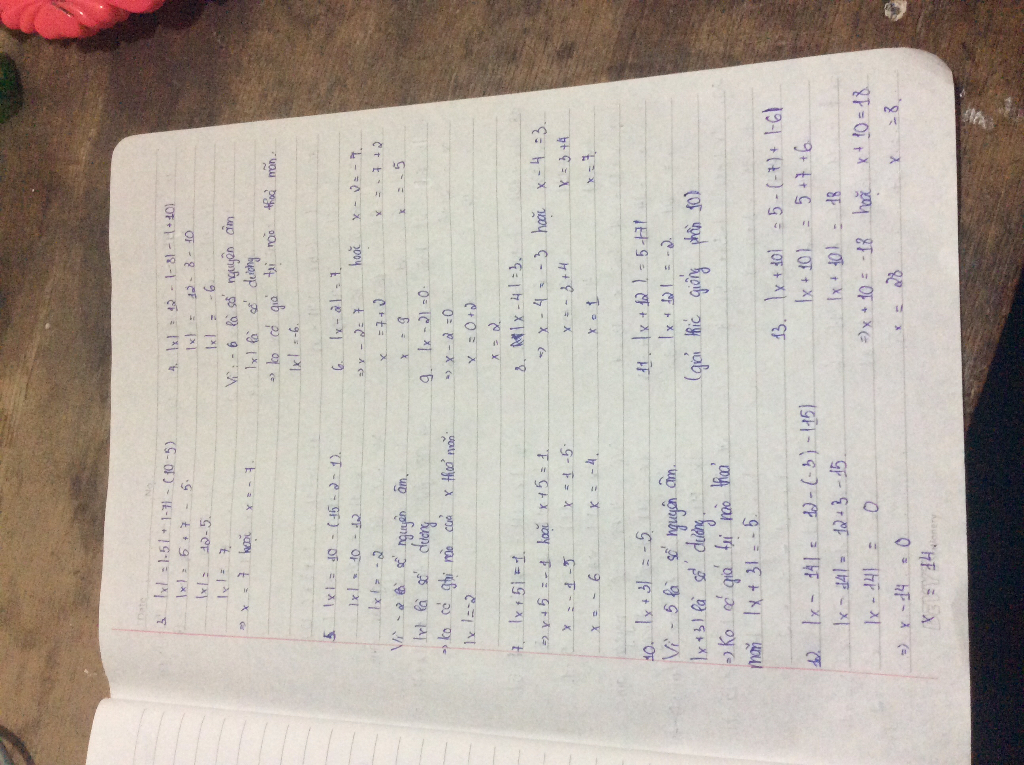 3. |x| = |-5| + |-7| - (10-5)
|x| = 5 + 7 - 5.
|x| = 12-5.
|x| = 7.
⇒ x = 7 hoặc x = -7.
4. |x| = 12 - |-8| - |+10|
|x| = 12 - 8 - 10
|x| = -6.
Vì -6 là số nguyên âm
|x| là số dương
⇒ ko có giá trị nào thoả mãn.
|x| = -6.
5. |x| = 10 - (15-2-1).
|x| = 10 - 12
|x| = -2
Vì -2 là số nguyên âm.
|x| là số dương
⇒ ko có giá trị nào của x thoả mãn
|x| = -2
6. |x-2| = 7.
⇒ x-2 = 7 hoặc x-2 = -7.
x = 7+2 x = -7+2
x = 9 x = -5
9. |x-2| = 0.
⇒ x-2 = 0
x = 0+2
x = 2
7. |x+5| = 1
⇒ x+5 = -1 hoặc x+5 = 1.
x = -1-5 x = 1-5.
x = -6 x = -4.
8. |x-4| = 3.
⇒ x-4 = -3 hoặc x-4 = 3.
x = -3+4 x = 3+4
x = 1 x = 7.
10. |x+3| = -5.
Vì -5 là số nguyên âm.
|x+3| là số dương.
⇒ Ko có giá trị nào thoả
mãn |x+3| = -5.
11. |x+12| = 5-|7|
|x+12| = -2.
(giải thíc giống phần 10)
12. |x-14| = 12-(-3)-|15|
|x-14| = 12+3-15.
|x-14| = 0
⇒ x-14 = 0
x = 14.
13. |x+10| = 5-(-7)+|-6|
|x+10| = 5+7+6.
|x+10| = 18
⇒ x+10 = -18 hoặc x+10 = 18
x = 28 x = 8.